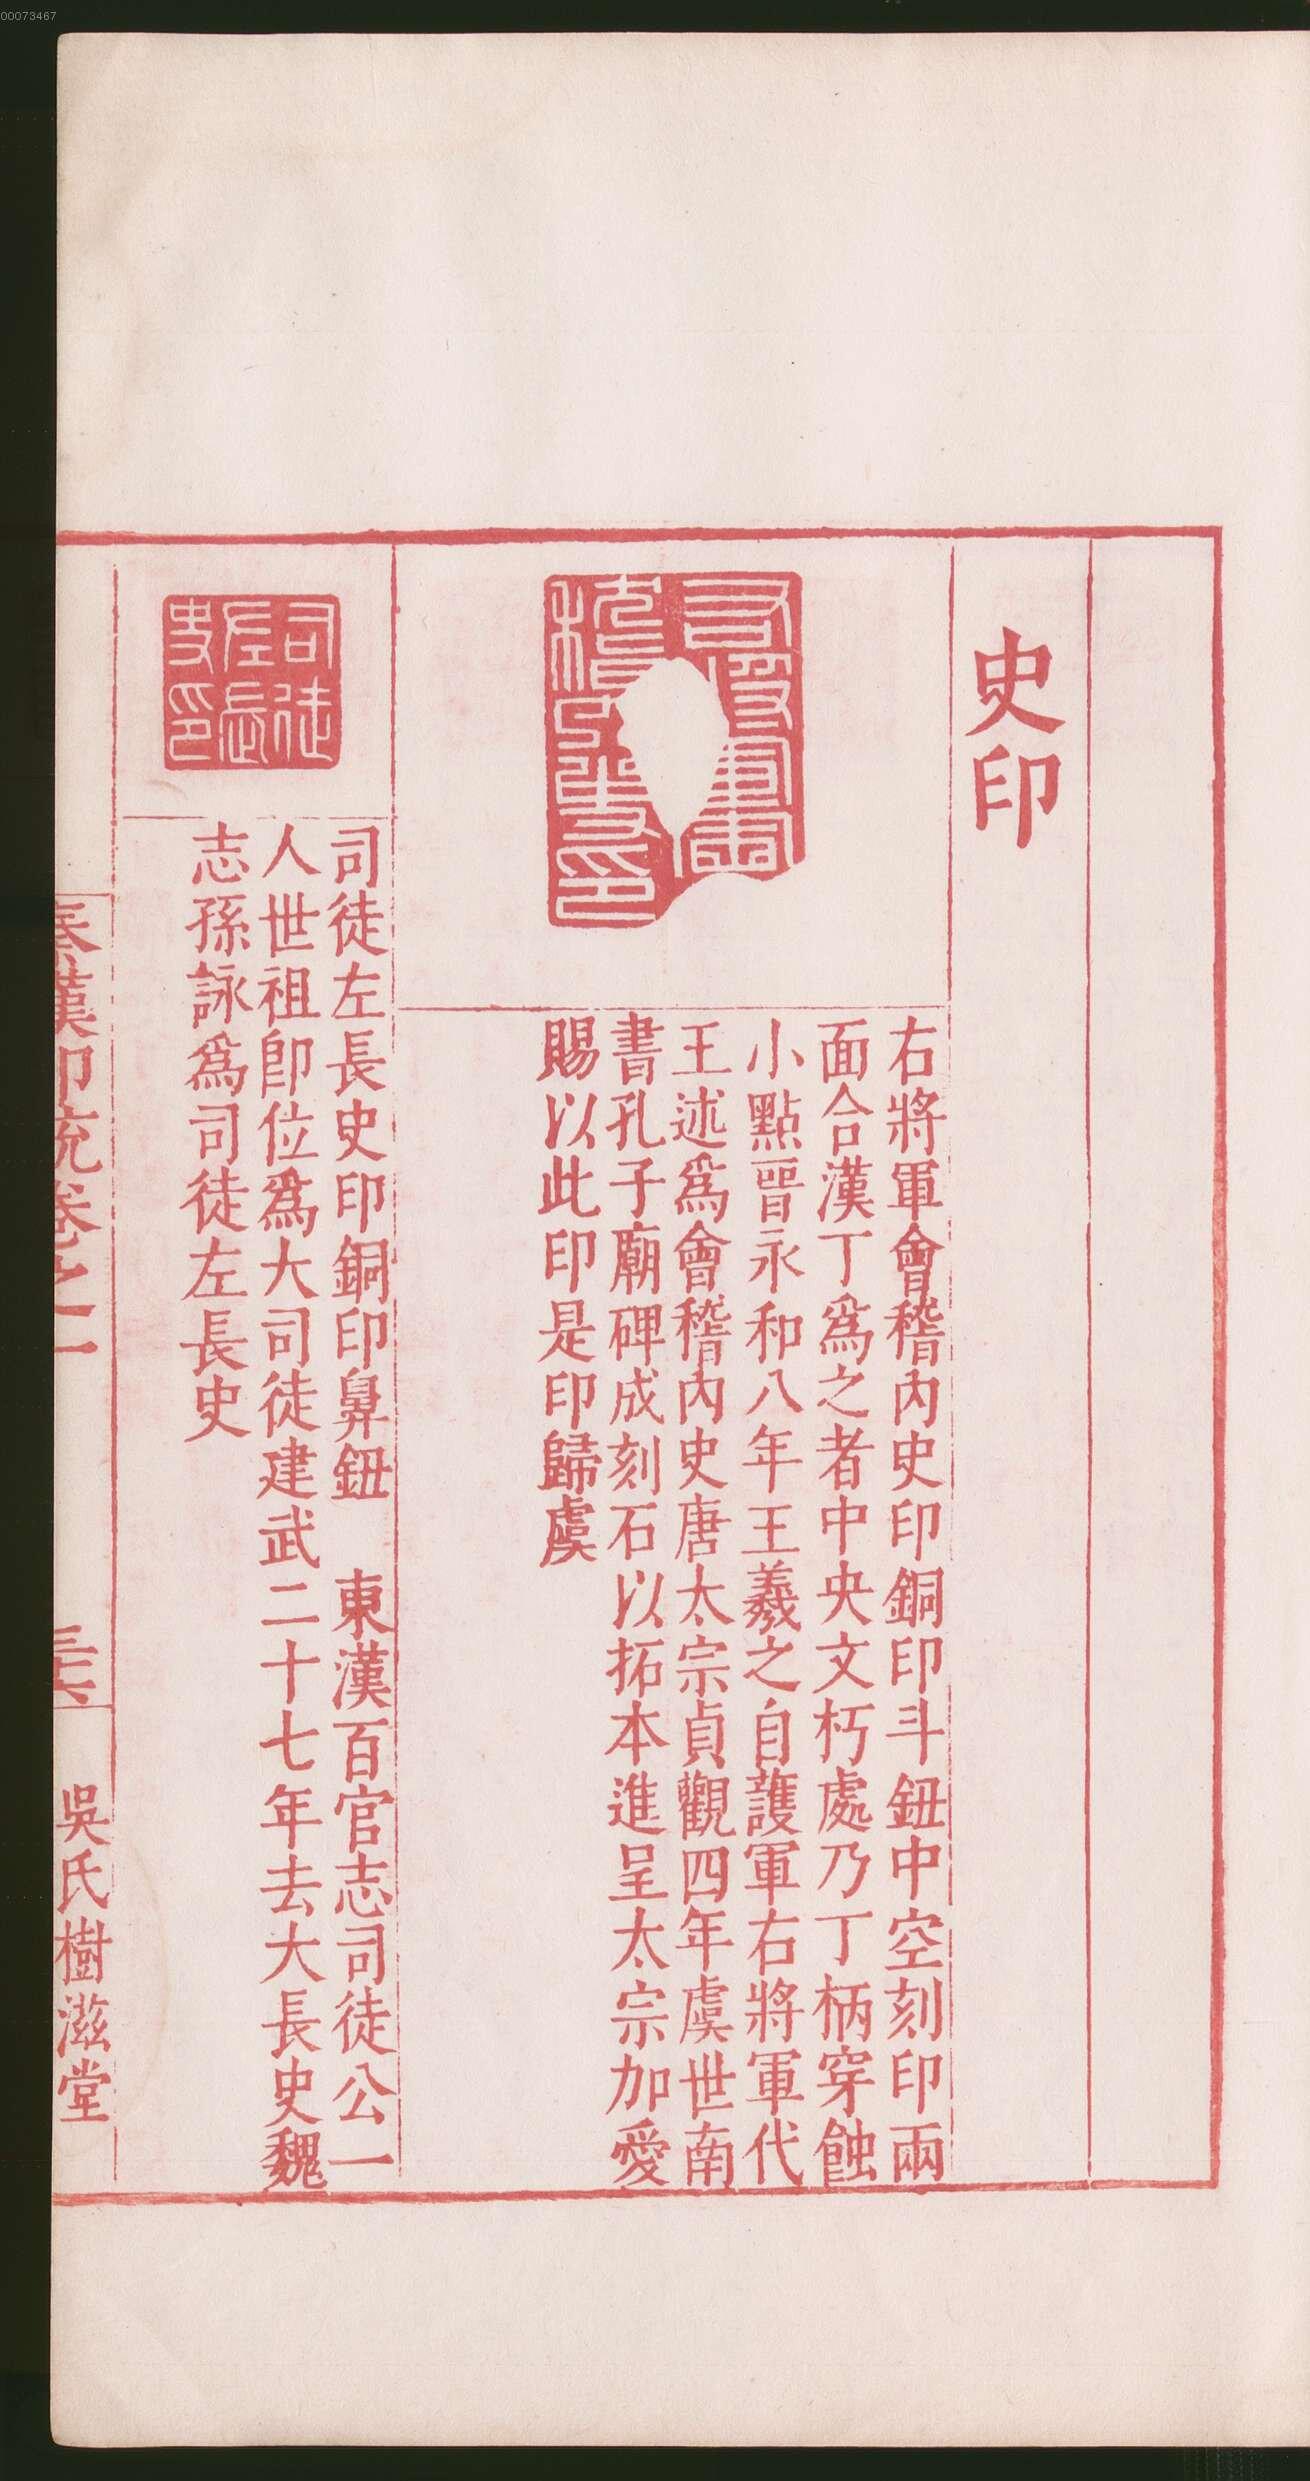 00073467
史印
右將軍會稽內史印銅印斗鈕中空刻印兩
面合漢丁爲之者中央文朽處乃丁柄穿蝕
小點晉永和八年王羲之自護軍右將軍代
王述爲會稽內史唐太宗貞觀四年虞世南
書孔子廟碑成刻石以拓本進呈太宗加愛
賜以此印是印歸虞
司徒左長史印
司徒左長史印銅印鼻鈕 東漢百官志司徒公一
人世祖卽位爲大司徒建武二十七年去大長史魏
志孫詠爲司徒左長史
秦漢印統卷之一
吳氏樹滋堂